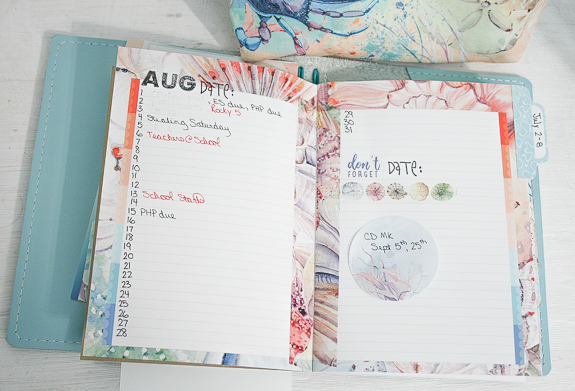 AUG DATE:
1
2 ES due, PHP due
3 Rocky 5
4
5 Saturday
6 Teachers@School
7
8
9
10
11
12
13 School Starts
14
15 PHP due
16
17
18
19
20
21
22
23
24
25
26
27
28
29
30
31
don't
FORGET DATE:
CD Mk
Sept 5th, 25th
July 2-8